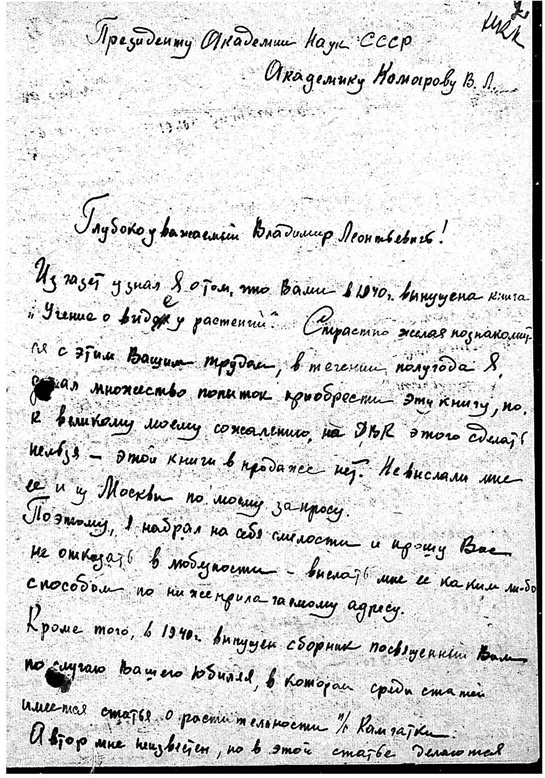 Президенту Академии Наук СССР
Академику Комарову В. Л.
Глубокоуважаемый Владимир Леонтьевичъ!
Из газет узнал я о том, что Вами в 1940г. выпущена книга
"Учение о виде у растений". Страстно желая познакомит-
ся с этим Вашим трудом, в течении полугода я,
делал множество попыток приобрести эту книгу, но,
к великому моему сожалению, на ДВК этого сделать
нельзя – этой книги в продаже нет. Не выслали мне
ее и из Москвы по моему запросу.
Поэтому, я набрал на себя смелости и прошу Вас
не отказать в любезности – выслать мне ее каким либо
способом по нижеприлагаемому адресу.
Кроме того, в 1940г. выпущен сборник посвященный Вам
по случаю Вашего Юбилея, в котором среди статей
имеется статья о растительности п/о Камчатки.
Автор мне неизвестен, но в этой статье делаются